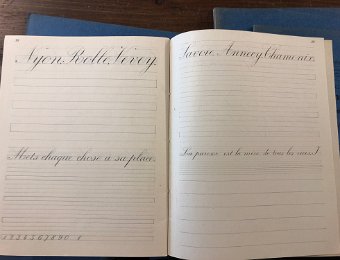 Nyon. Rolle. Vevey.
Mets chaque chose à sa place.
1 2 3 4 5 6 7 8 9 0
Savoie. Annecy. Chamonix.
La paresse est la mère de tous les vices.